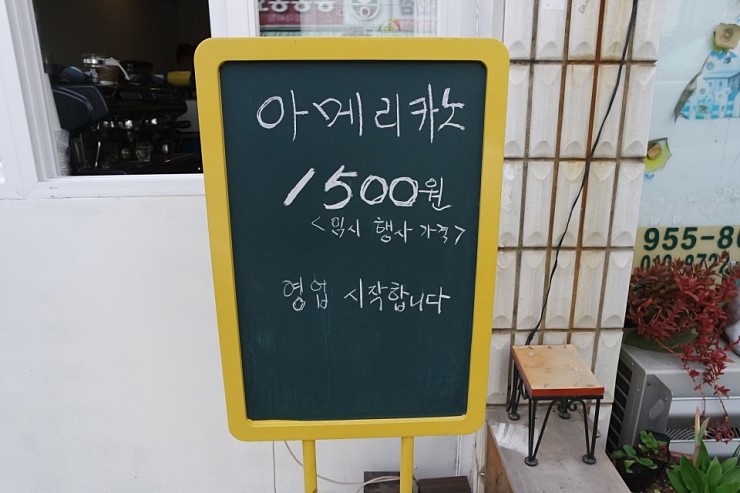 아메리카노
1500원
<임시 행사 가격>
영업 시작합니다
955-80